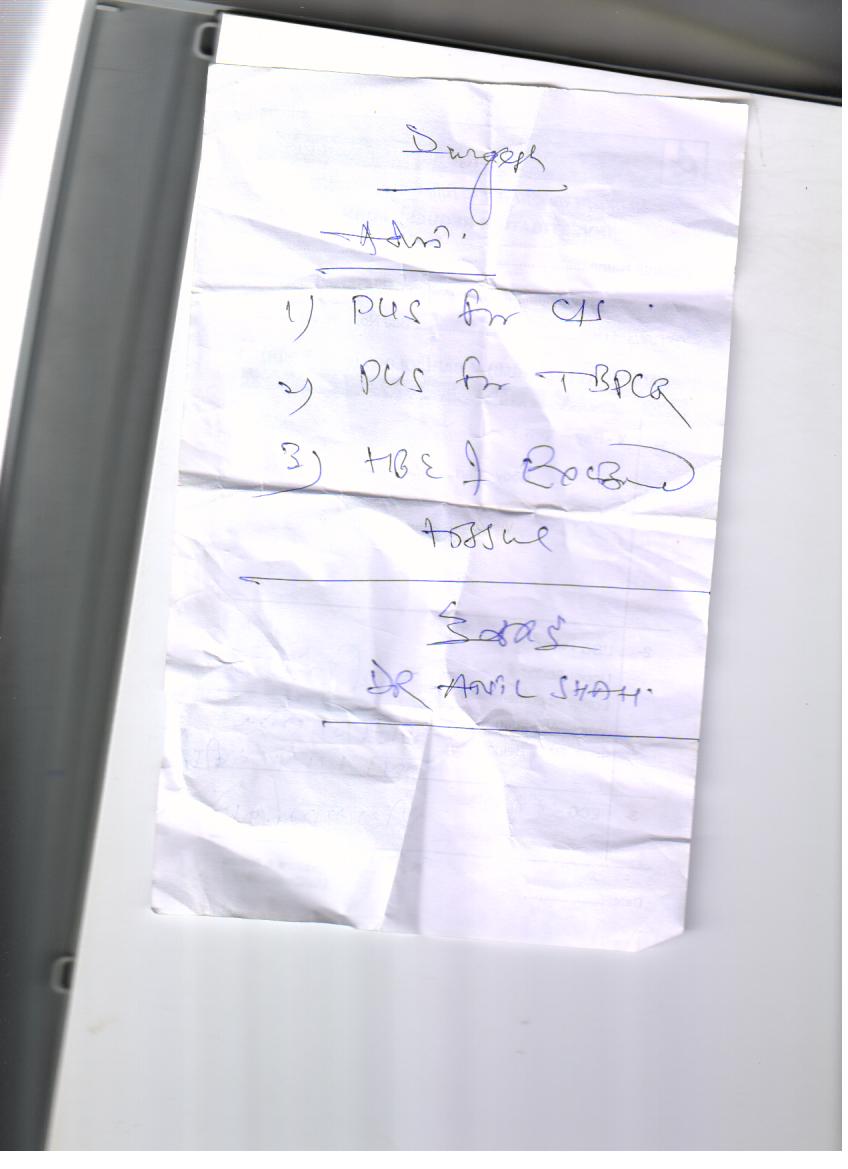 Durgesh
Adv.
1) PUS for C/S.
2) PUS for TBPCR
3) HBE of
tissue
DR ANIL SHAH.